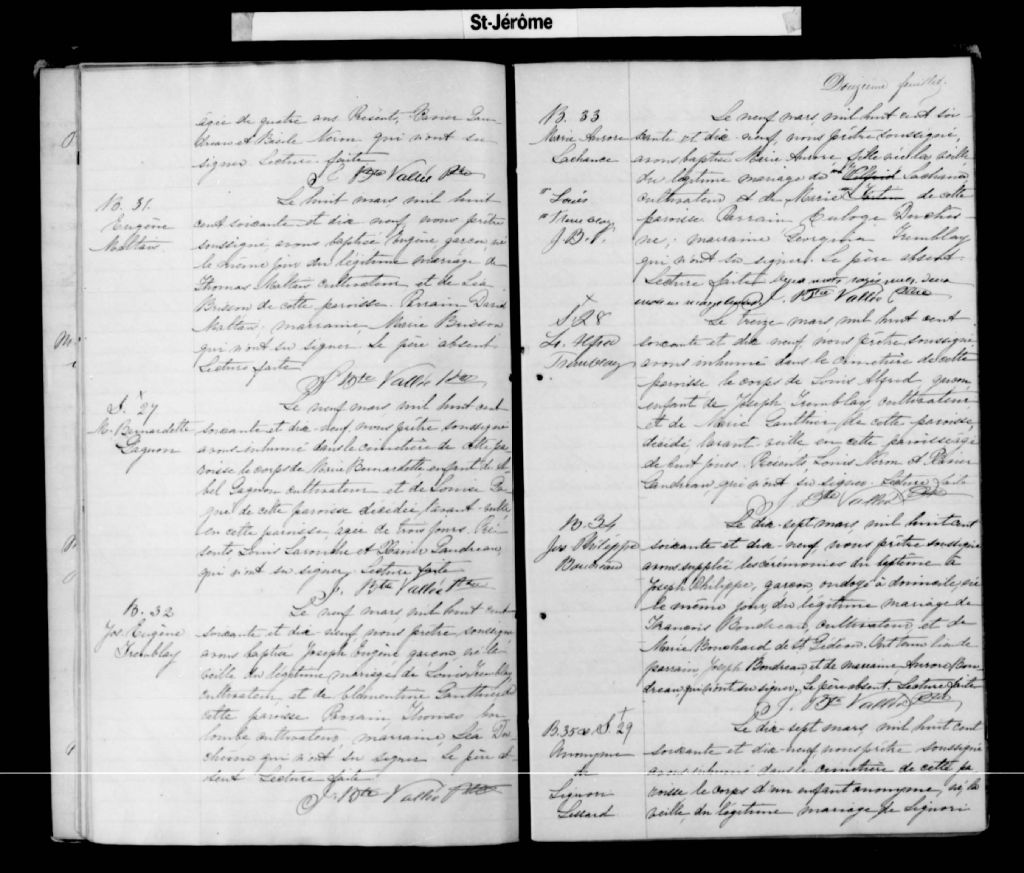 St-Jérôme
agée de quatre ans Présents, Xavier Gau-
dreau et Basile Néron qui n'ont su
signer Lecture faite
J. Bte Vallée Ptre
B. 31.
Eugène
Maltais
Le huit mars mil huit
cent soixante et dix neuf nous prêtre
soussigné avons baptisé Eugène garçon né
le même jour du légitime mariage de
Thomas Maltais cultivateur et de Léa
Buisson de cette paroisse. Parrain David
Maltais, marraine, Marie Buisson
qui n'ont su signer. Le père absent
Lecture faite
J. Bte Vallée Ptre
S. 27
M. Bernardette
Gagnon
Le neuf mars mil huit cent
soixante et dix-neuf, nous prêtre soussigné
avons inhumé dans le cimetière de cette pa
roisse le corps de Marie Bernardette enfant de A
bel Gagnon cultivateur et de Louise
de cette paroisse décédée l'avant-veille
en cette paroisse, agée de trois jours. Pré-
sents Louis Larouche et Xavier Gaudreau,
qui n'ont su signer. Lecture faite
J. Bte Vallée Ptre
B. 32
Jos. Eugène
Tremblay
Le neuf mars, mil huit cent
soixante et dix neuf, nous prêtre soussigné
avons baptisé Joseph Eugène garçon né la
veille du légitime mariage de Louis Tremblay
cultivateur, et de Clémentine Gauthier de
cette paroisse Parrain, Thomas
cultivateur, marraine, Léa Du
chesne qui n'ont su signer Le père ab
sent Lecture faite
J. Bte Vallée Ptre
Douzième feuillet.
B. 33
Marie Aurore
Lachance
" Louis
" Tremblay
J. B. V.
Le neuf mars, mil huit cent soi-
xante et dix-neuf, nous prêtre soussigné,
avons baptisé Marie Aurore fille née la veille
du légitime mariage de Lachance
cultivateur et de Marie de cette
paroisse. Parrain Euloge Duches-
ne; marraine Georgina Tremblay
qui n'ont su signer. Le père absent.
Lecture faite Deux mots rayés nuls, deux
J. Bte Vallée Ptre
S. 28
Ls. Alfred
Tremblay
Le treize mars mil huit cent
soixante et dix neuf nous prêtre soussigné
avons inhumé dans le cimetière de cette
paroisse le corps de Louis Alfred, garçon,
enfant de Joseph Tremblay cultivateur
et de Marie Gauthier de cette paroisse,
décédé l'avant-veille en cette paroisse agé
de huit jours. Présents, Louis Néron et Xavier
Gaudreau, qui n'ont su signer. Lecture faite
J. Bte Vallée Ptre
B. 34
Jos Philippe
Boudreau
Le dix-sept mars mil huit cent
soixante et dix-neuf, nous prêtre soussigné
avons suppléé les cérémonies du baptême à
Joseph Philippe, garçon, ondoyé à domicile, né
le même jour, du légitime mariage de
François Boudreau, cultivateur et de
Marie Bouchard de St Gédéon. Ont tenu lieu de
parrain, Joseph Boudreau, et de marraine Aurore Bou-
dreau, qui n'ont su signer. Le père absent. Lecture faite
J. Bte Vallée Ptre
B. 35 & S. 29
Anonyme
de
Lessard
Le dix-sept mars, mil huit cent
soixante et dix-neuf nous prêtre soussigné
avons inhumé dans le cimetière de cette pa
roisse le corps d'un enfant anonyme, né la
veille, du légitime mariage de